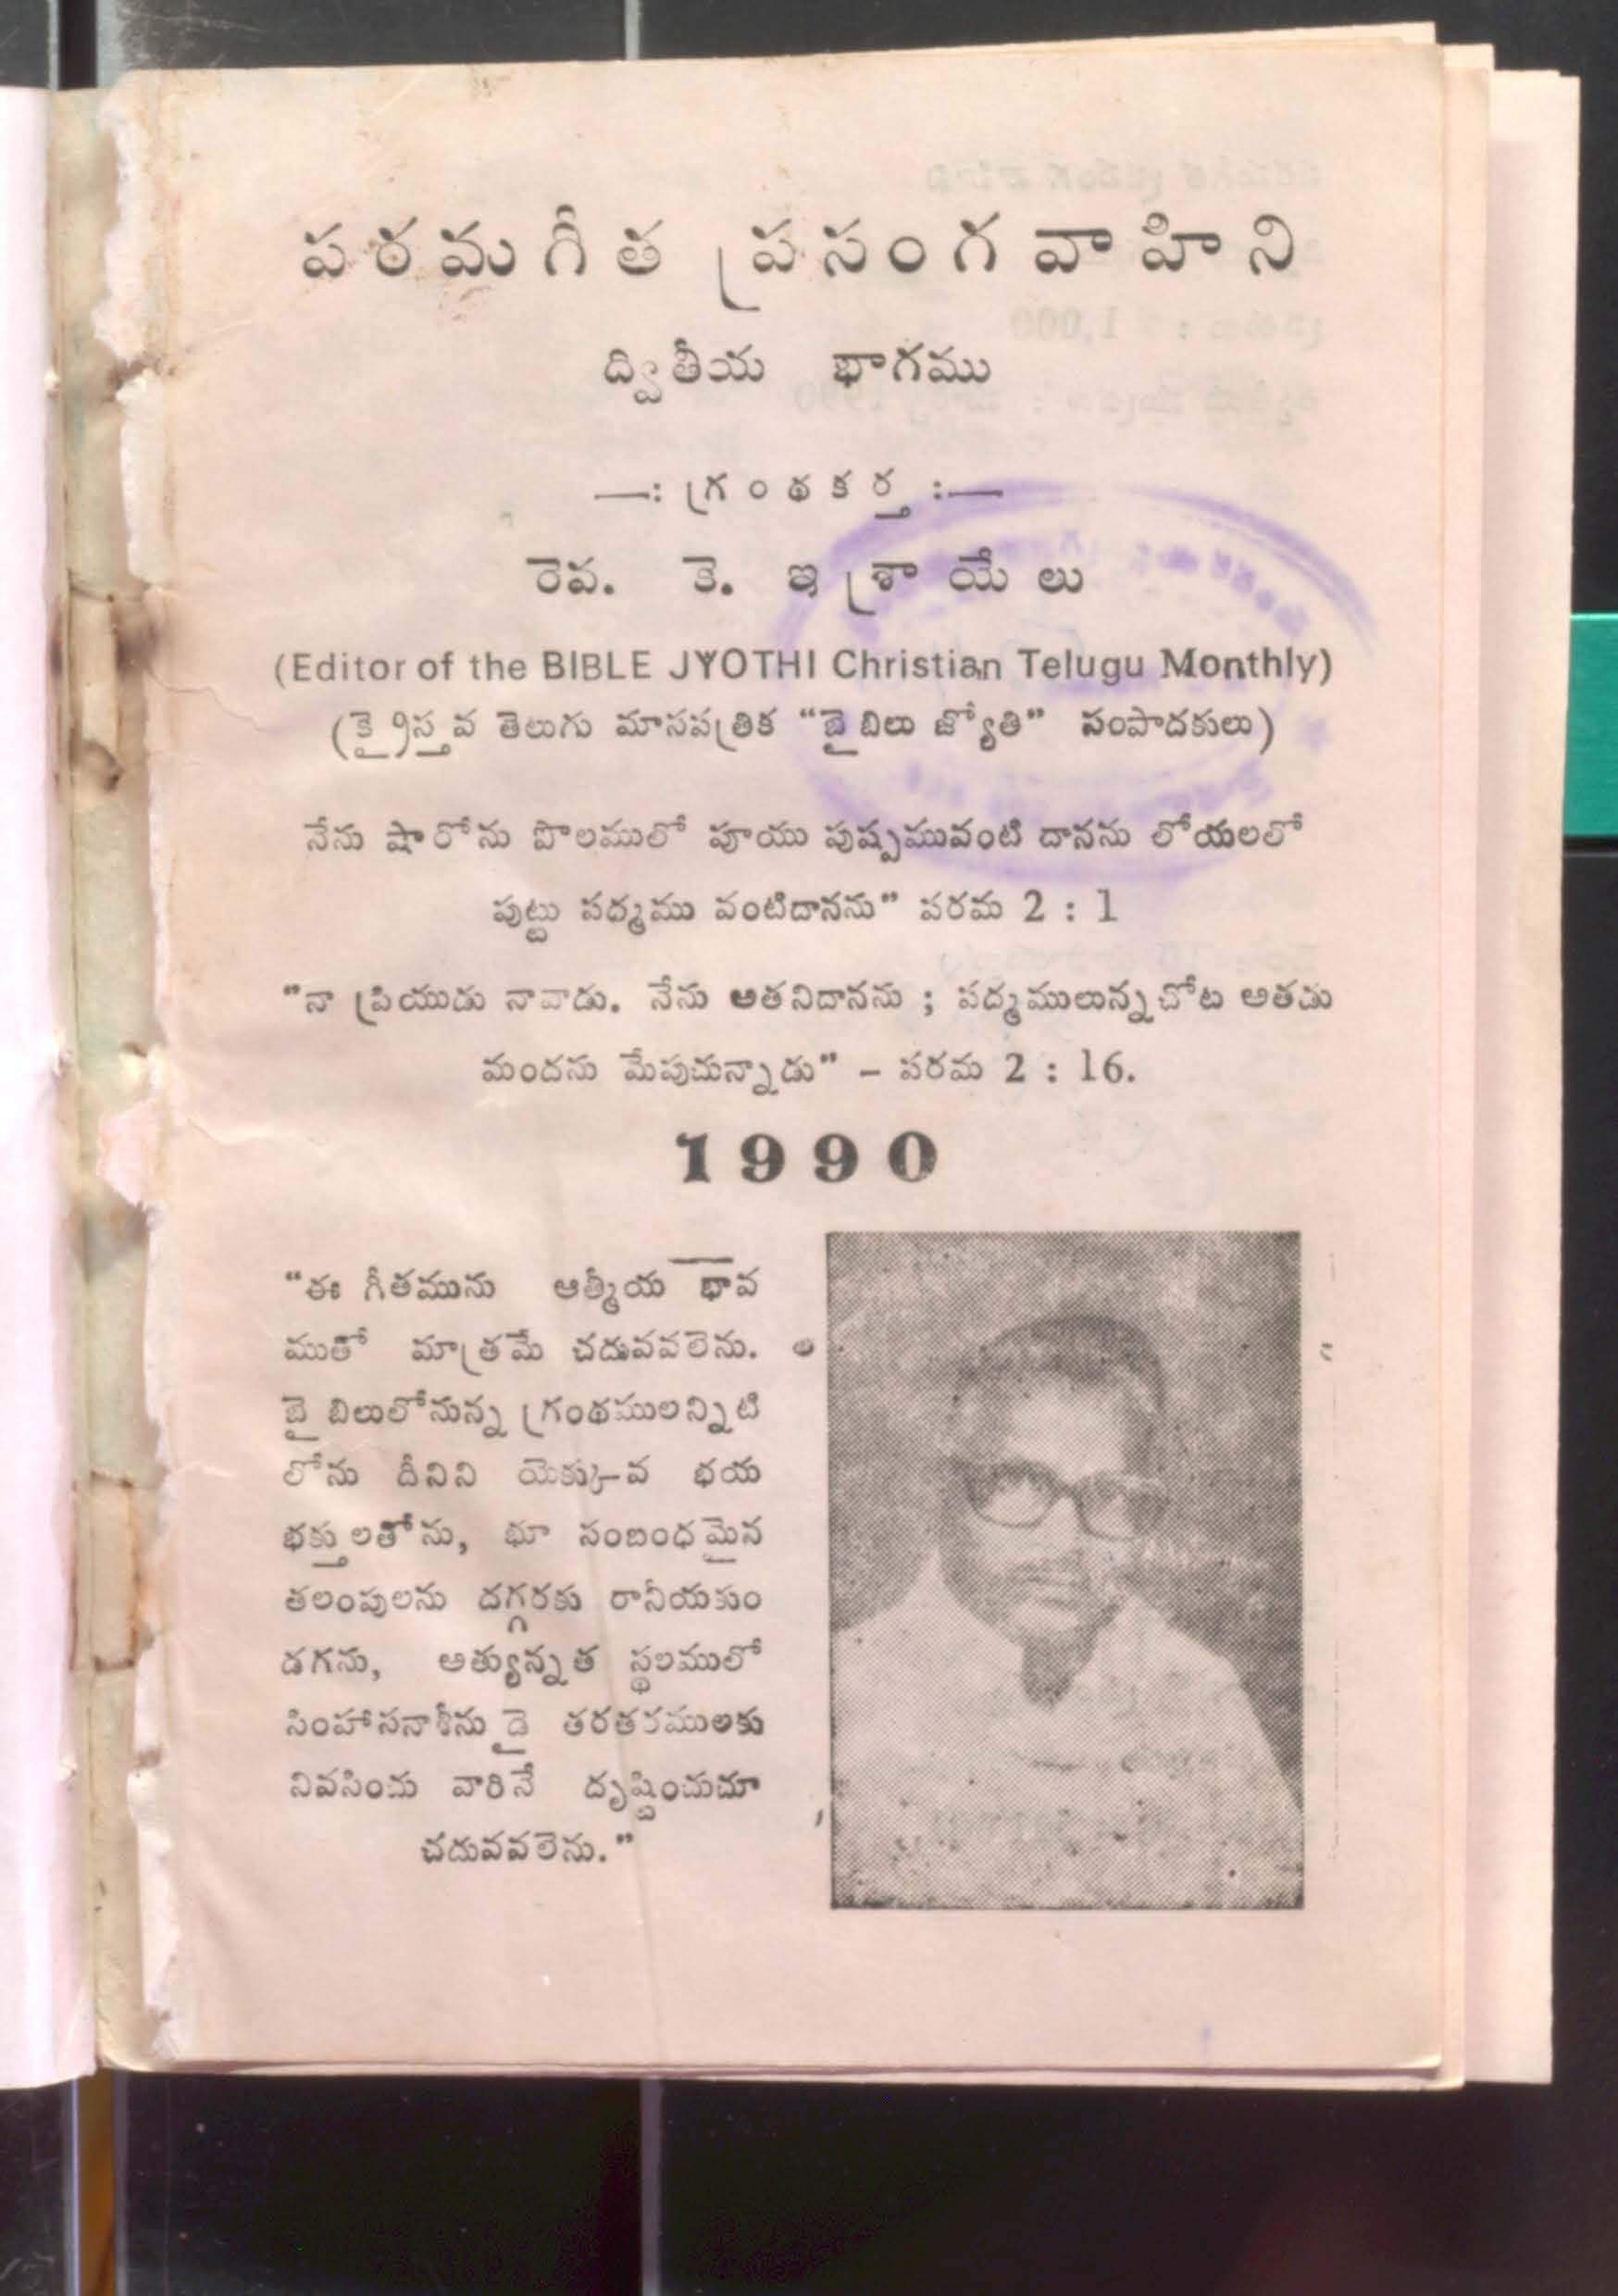 పరమగీత ప్రసంగవాహిని
ద్వితీయ భాగము
—: గ్రంథకర్త :—
రెవ. కె. ఇశ్రాయేలు
(Editor of the BIBLE JYOTHI Christian Telugu Monthly)
(క్రైస్తవ తెలుగు మాసపత్రిక “బైబిలు జ్యోతి” సంపాదకులు)
నేను షారోను పొలములో పూయు పుష్పమువంటి దానను లోయలలో
పుట్టు పద్మము వంటిదానను” పరమ 2 : 1
“నా ప్రియుడు నావాడు. నేను అతనిదానను ; పద్మములున్నచోట అతడు
మందను మేపుచున్నాడు” – పరమ 2 : 16.
1990
“ఈ గీతమును ఆత్మీయ భావ
ముతో మాత్రమే చదువవలెను.
బైబిలులోనున్న గ్రంథములన్నిటి
లోను దీనిని యెక్కువ భయ
భక్తులతోను, భూ సంబంధమైన
తలంపులను దగ్గరకు రానీయకుం
డగను, అత్యున్నత స్థలములో
సింహాసనాశీనుడై తరతరములకు
నివసించు వారినే దృష్టించుచూ
చదువవలెను.”